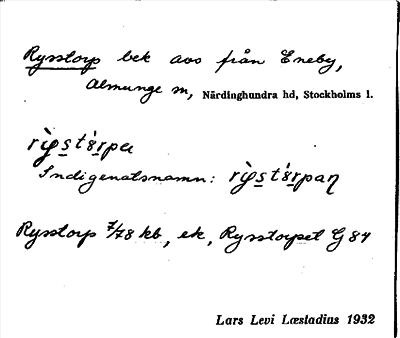 Rysstorp bek avs från Eneby,
Almunge sn, Närdinghundra hd, Stockholms l.
Indigenatsnamn:
Rysstorp 7/78 kb, ek, Rysstorpet G 84
Lars Levi Læstadius 1932